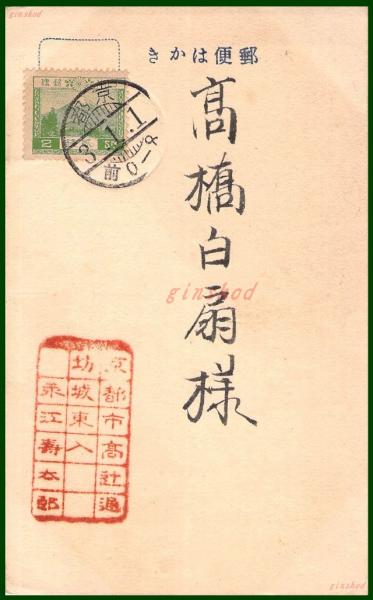 ginshod
郵便はかき
髙橋白扇様
ginshod
京都
3.1.1
前0-8
京都市高辻通
坊城東入
永江壽太郎
ginshod